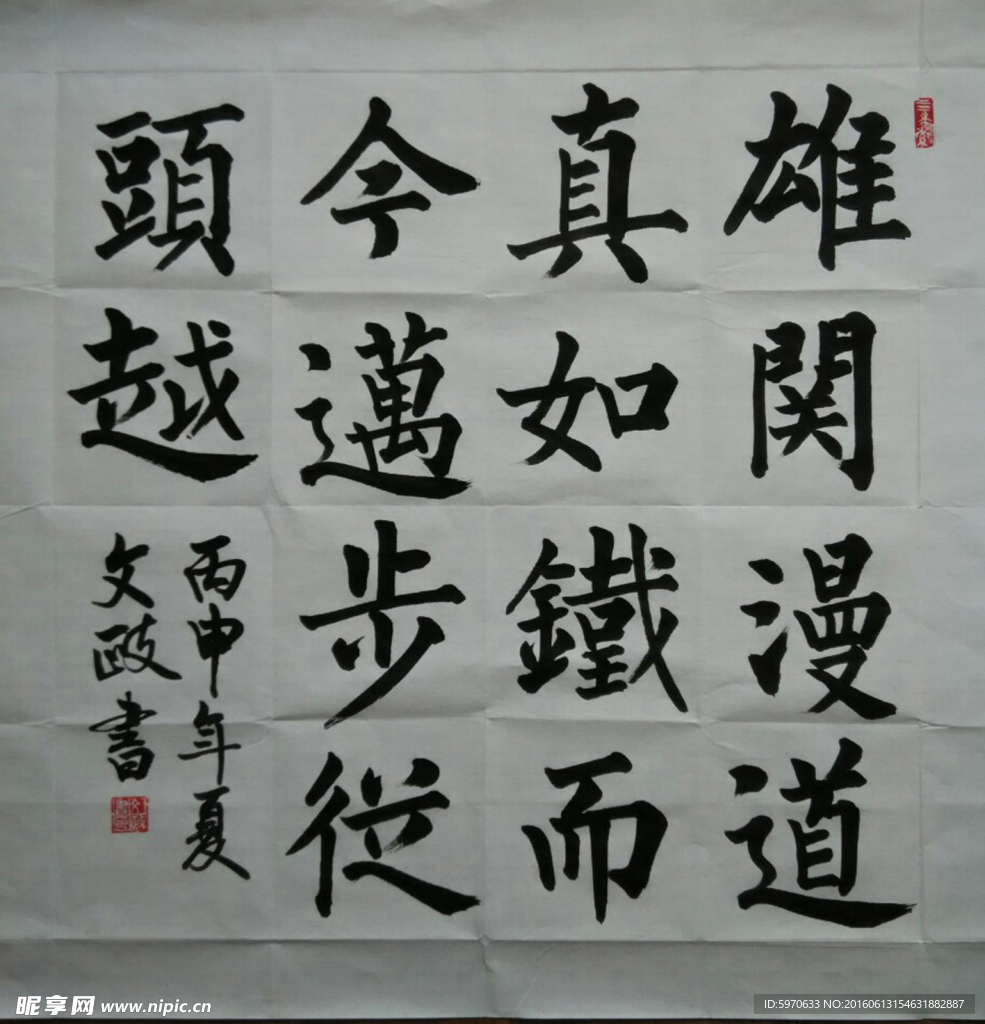 雄関漫道
真如鐵而
今邁步從
頭越
丙申年夏
文政書
昵享网 www.nipic.cn
ID:5970633 NO:20160613154631882887